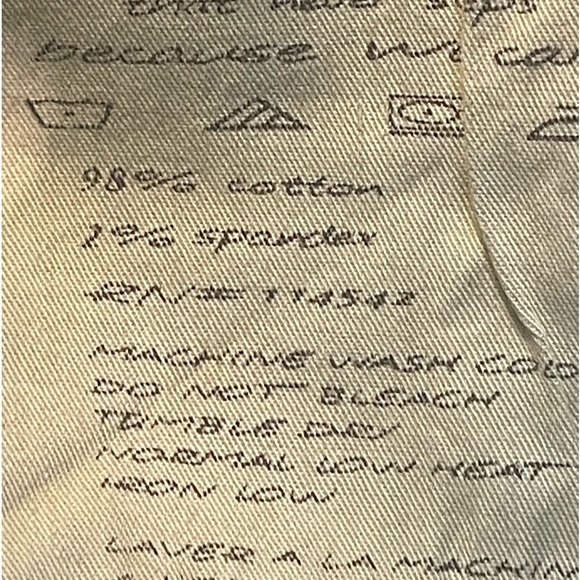 because we ca
98% cotton
2% spandex
RN# 114542
MACHINE WASH COLD
DO NOT BLEACH
TUMBLE DRY
NORMAL LOW HEAT
IRON LOW
LAVER A LA MACHIN